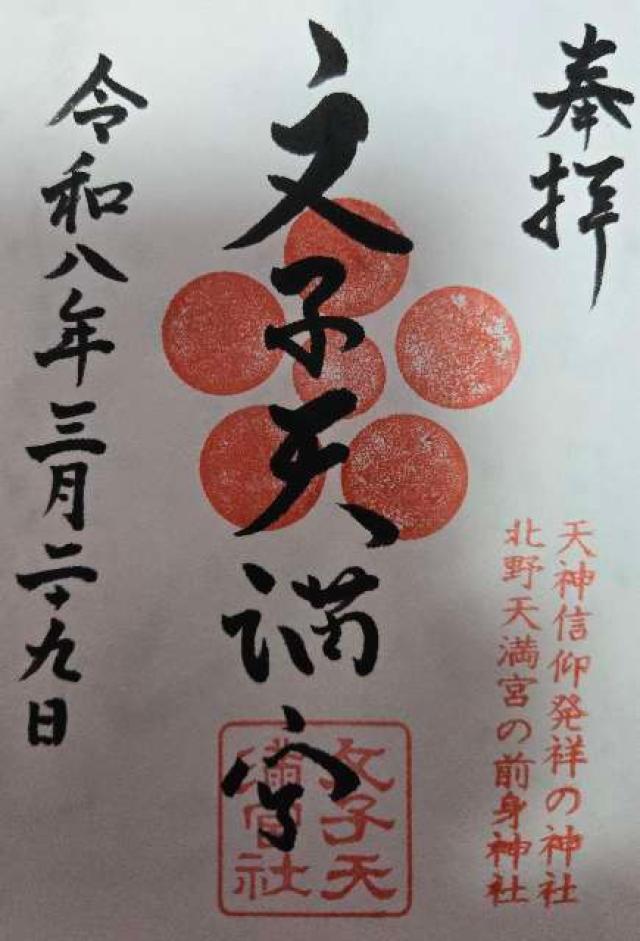 奉拝
天神信仰発祥の神社
北野天満宮の前身神社
文子天満宮
文子天
満宮社
令和八年三月二十九日